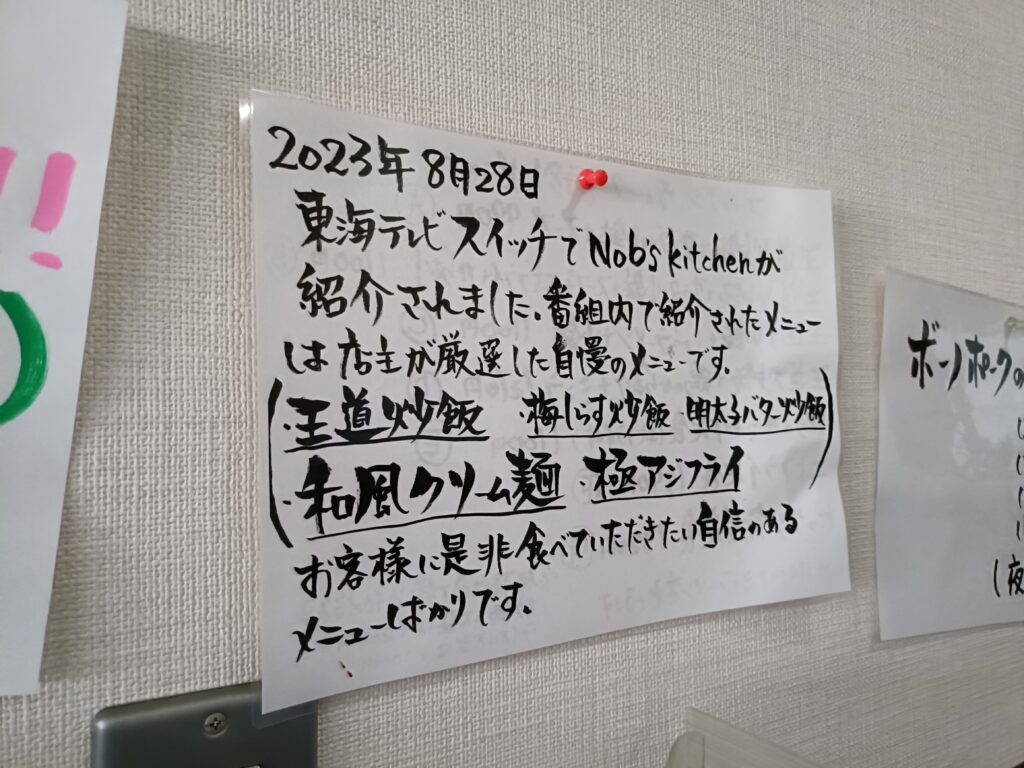 !!
2023年8月28日
東海テレビ スイッチでNob's kitchenが
紹介されました。番組内で紹介されたメニュー
は店主が厳選した自慢のメニューです。
(・王道炒飯 ・梅しらす炒飯 ・明太子バター炒飯
・和風クリーム麺 ・極アジフライ)
お客様に是非食べていただきたい自信のある
メニューばかりです。
ボーノポークの
(夜